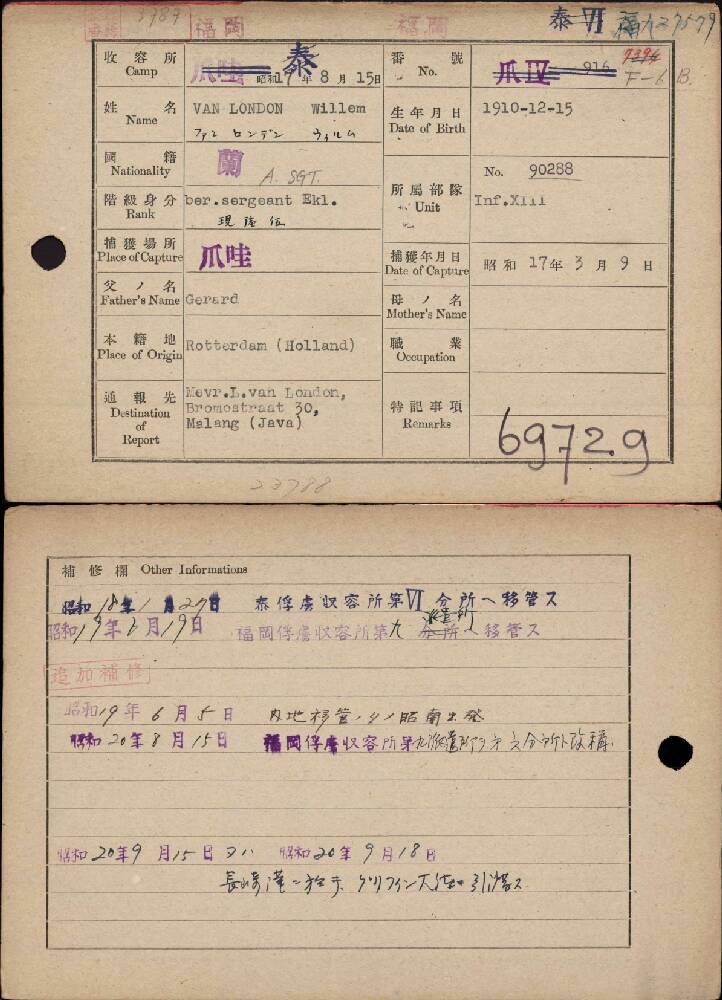 3787 福岡 福岡 泰 VI
收容所 Camp 爪哇 泰 昭和17年8月15日
番號 No. 爪IV 916 7394 F-6 B.
姓名 Name VAN LONDON Willem
ファン ロンデン ウィルム
生年月日 Date of Birth 1910-12-15
國籍 Nationality 蘭 A. SGT.
階級身分 Rank ber.sergeant Ekl.
所屬部隊 Unit No. 90288
Inf.XIII
捕獲場所 Place of Capture 爪哇
捕獲年月日 Date of Capture 昭和17年3月9日
父ノ名 Father's Name Gerard
母ノ名 Mother's Name
本籍地 Place of Origin Rotterdam (Holland)
職業 Occupation
通報先 Destination of Report
Mevr.L.van London,
Bromostraat 30,
Malang (Java)
特記事項 Remarks 69729
23788
補修欄 Other Informations
昭和18年1月27日 泰俘虜収容所第VI分所ヘ移管ス
昭和19年6月19日 福岡俘虜収容所第九分所ヘ移管ス
追加補修
昭和19年6月5日 内地移管ノタメ昭南出発
昭和20年8月15日 福岡俘虜収容所第九派遣所ヲ第六分所ト改称
昭和20年9月15日 昭和20年9月18日
長崎港ニ於テ グリフィン大佐 引渡ス